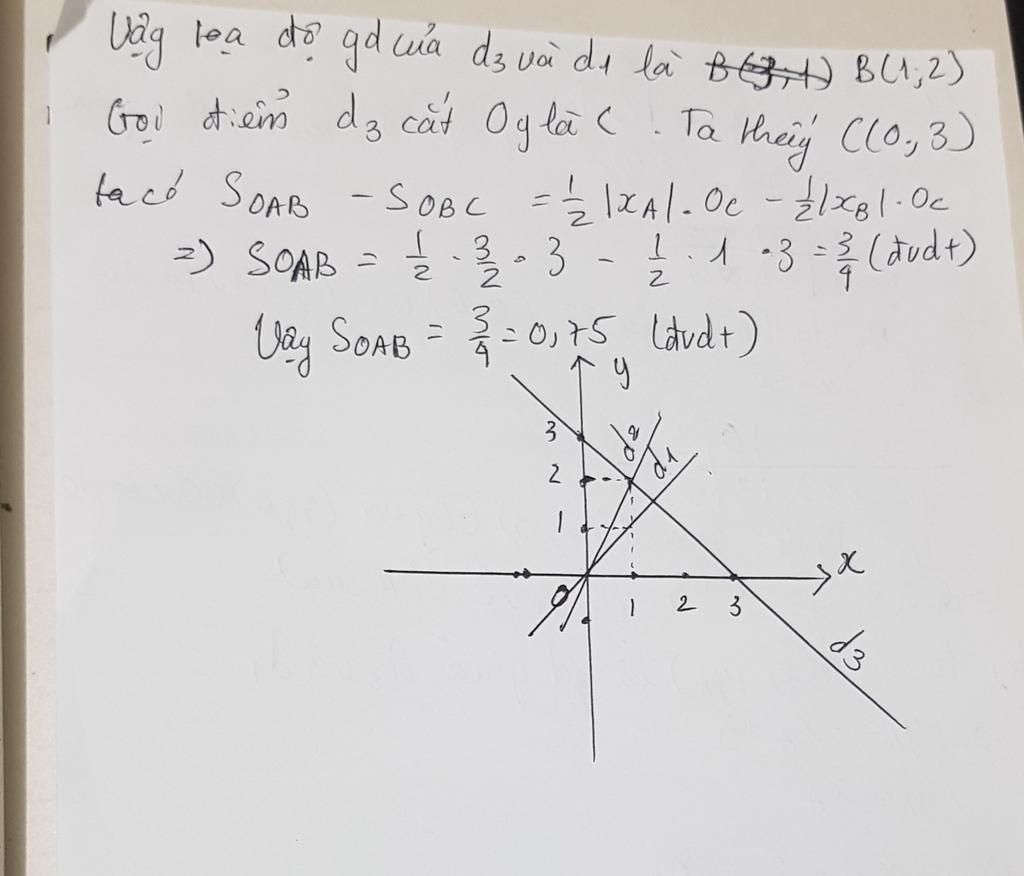 Vậy tọa độ gd của d3 và d1 là B(1;2)
Gọi điểm d3 cắt Oy là C. Ta thấy C(0;3)
ta có SOAB - SOBC = 1/2 |xA|.OC - 1/2 |xB|.OC
=> SOAB = 1/2 . 3/2 . 3 - 1/2 . 1 . 3 = 3/4 (đvdt)
Vậy SOAB = 3/4 = 0,75 (đvdt)
y
3
d2
d1
2
1
x
O
1 2 3
d3